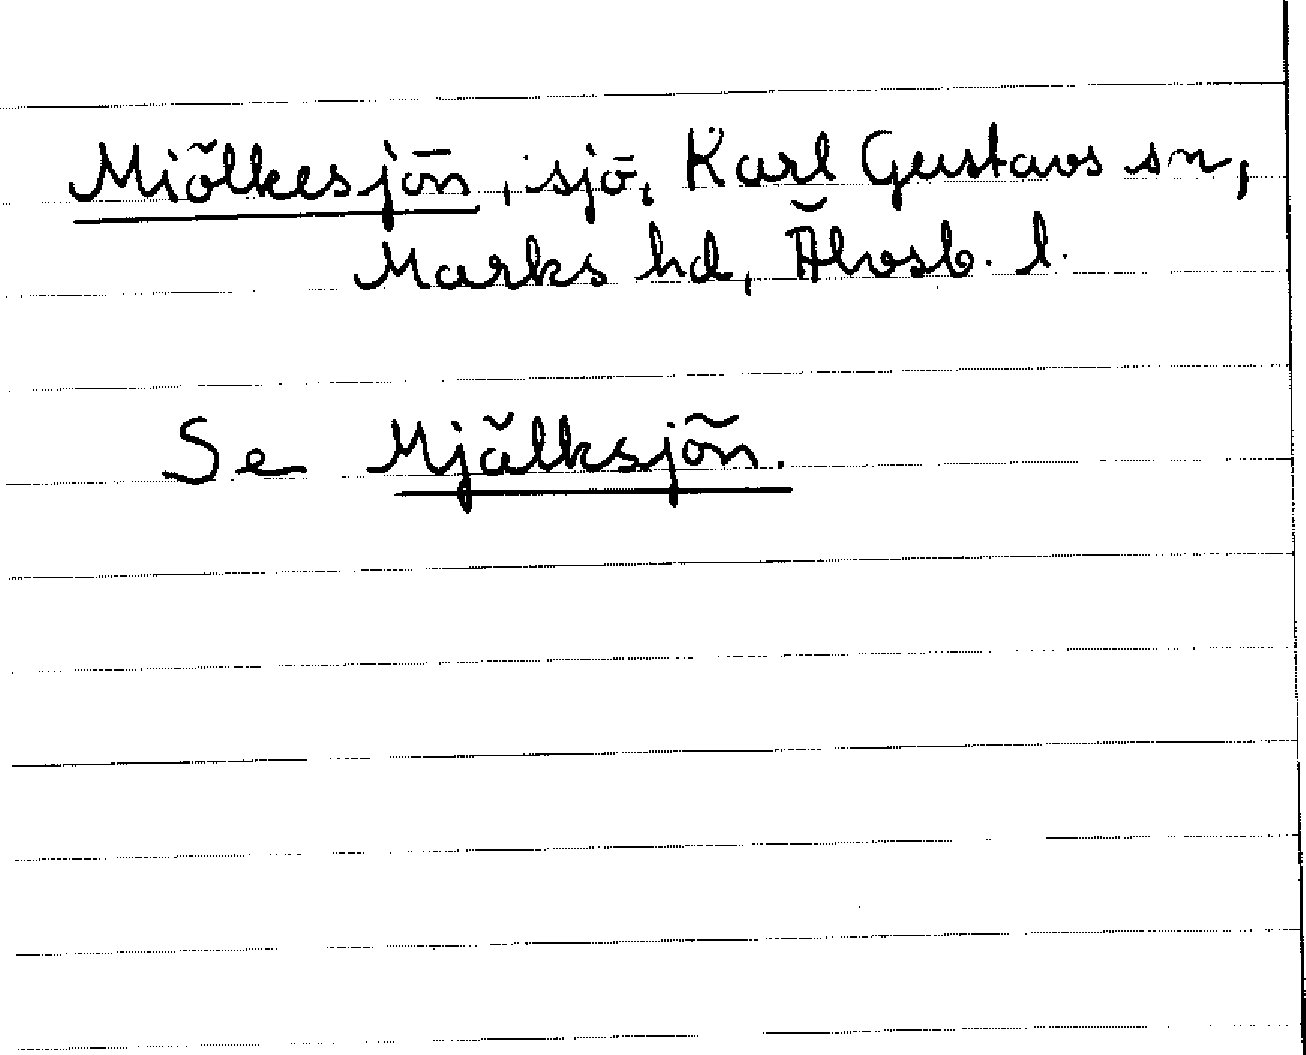 Miölkesjön, sjö, Karl Gustavs sn,
Marks hd, Älvsb. l.
Se Mjälksjön.